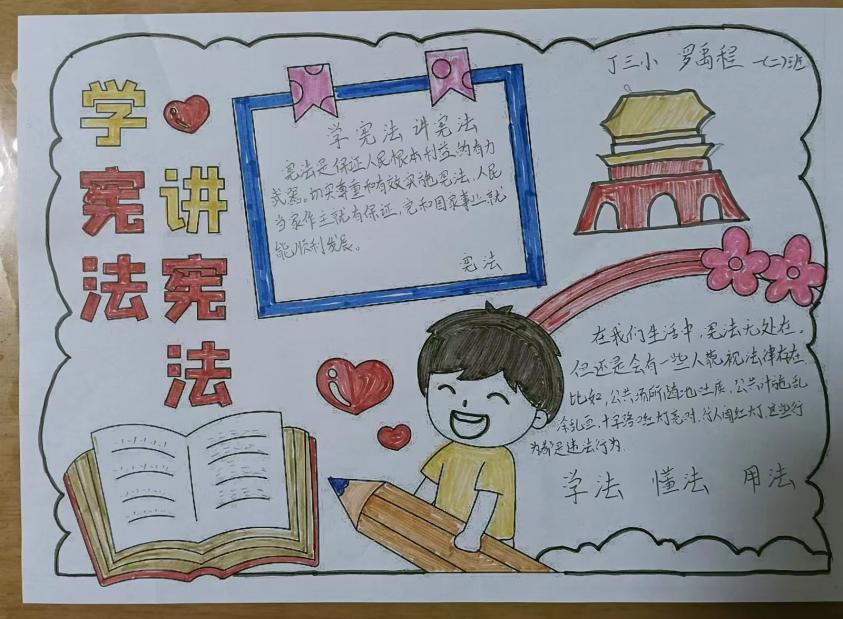 丁三小 罗禹程 一(二)班
学宪法
讲宪法
学宪法 讲宪法
宪法是保证人民根本利益的有力
武器。切实尊重和有效实施宪法,人民
当家作主就有保证,党和国家事业就
能顺利发展。
宪法
在我们生活中,宪法无处在。
但还是会有一些人藐视法律存在
比如,公共场所随地吐痰,公共叶施乱
涂乱画,十字路口红灯亮时,行人闯红灯,这些行
为都是违法行为
学法 懂法 用法